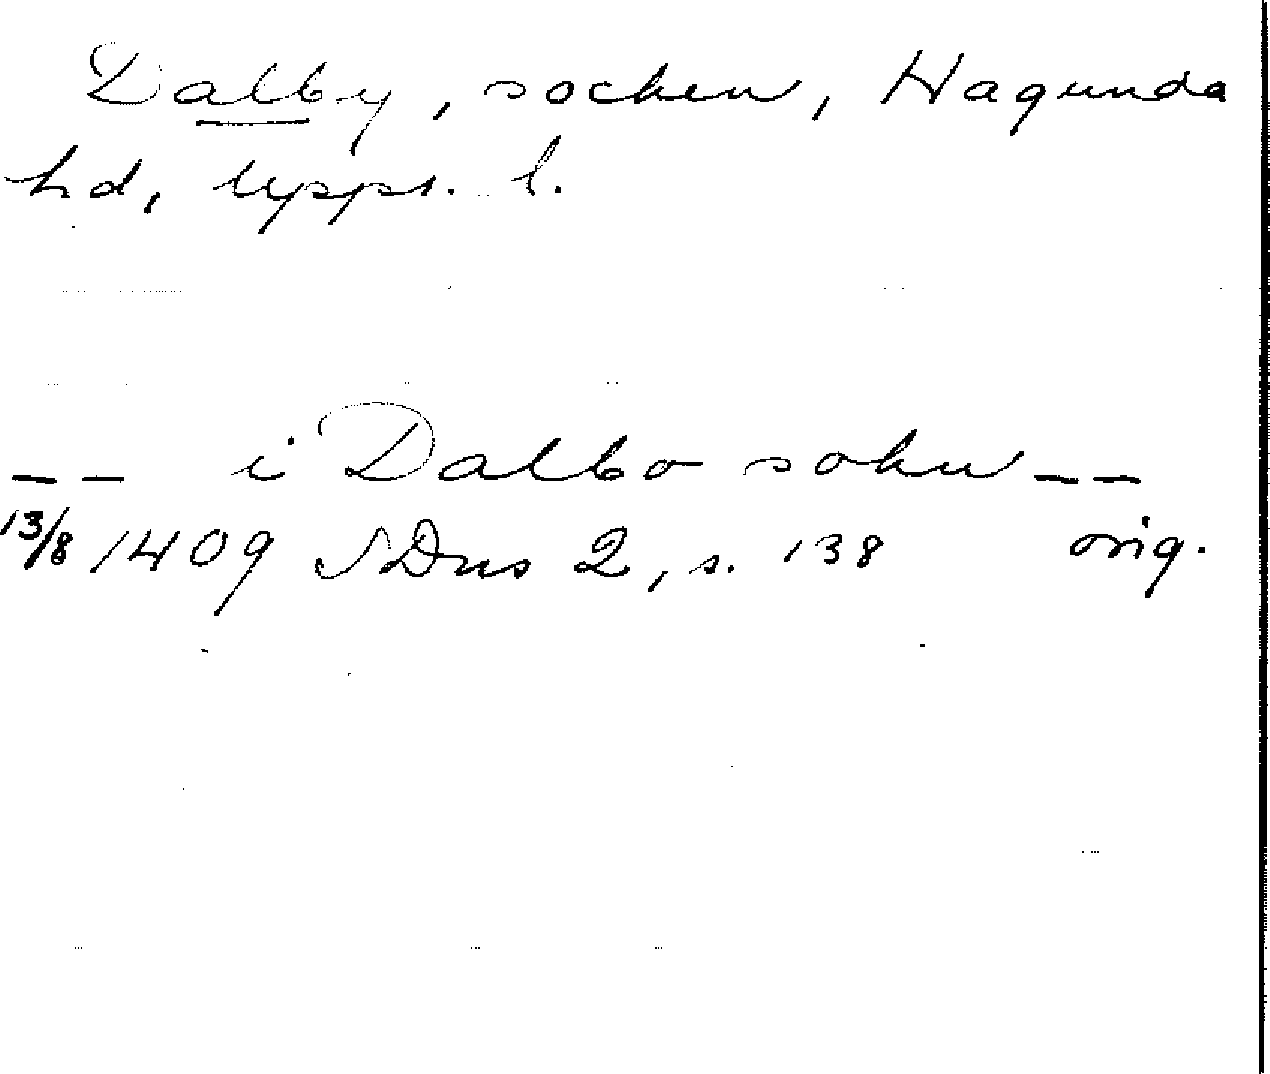 Dalby, socken, Hagunda
hd, Upps. l.
-- i Dalbo sokn --
13/8 1409 SDns 2, s. 138 orig.